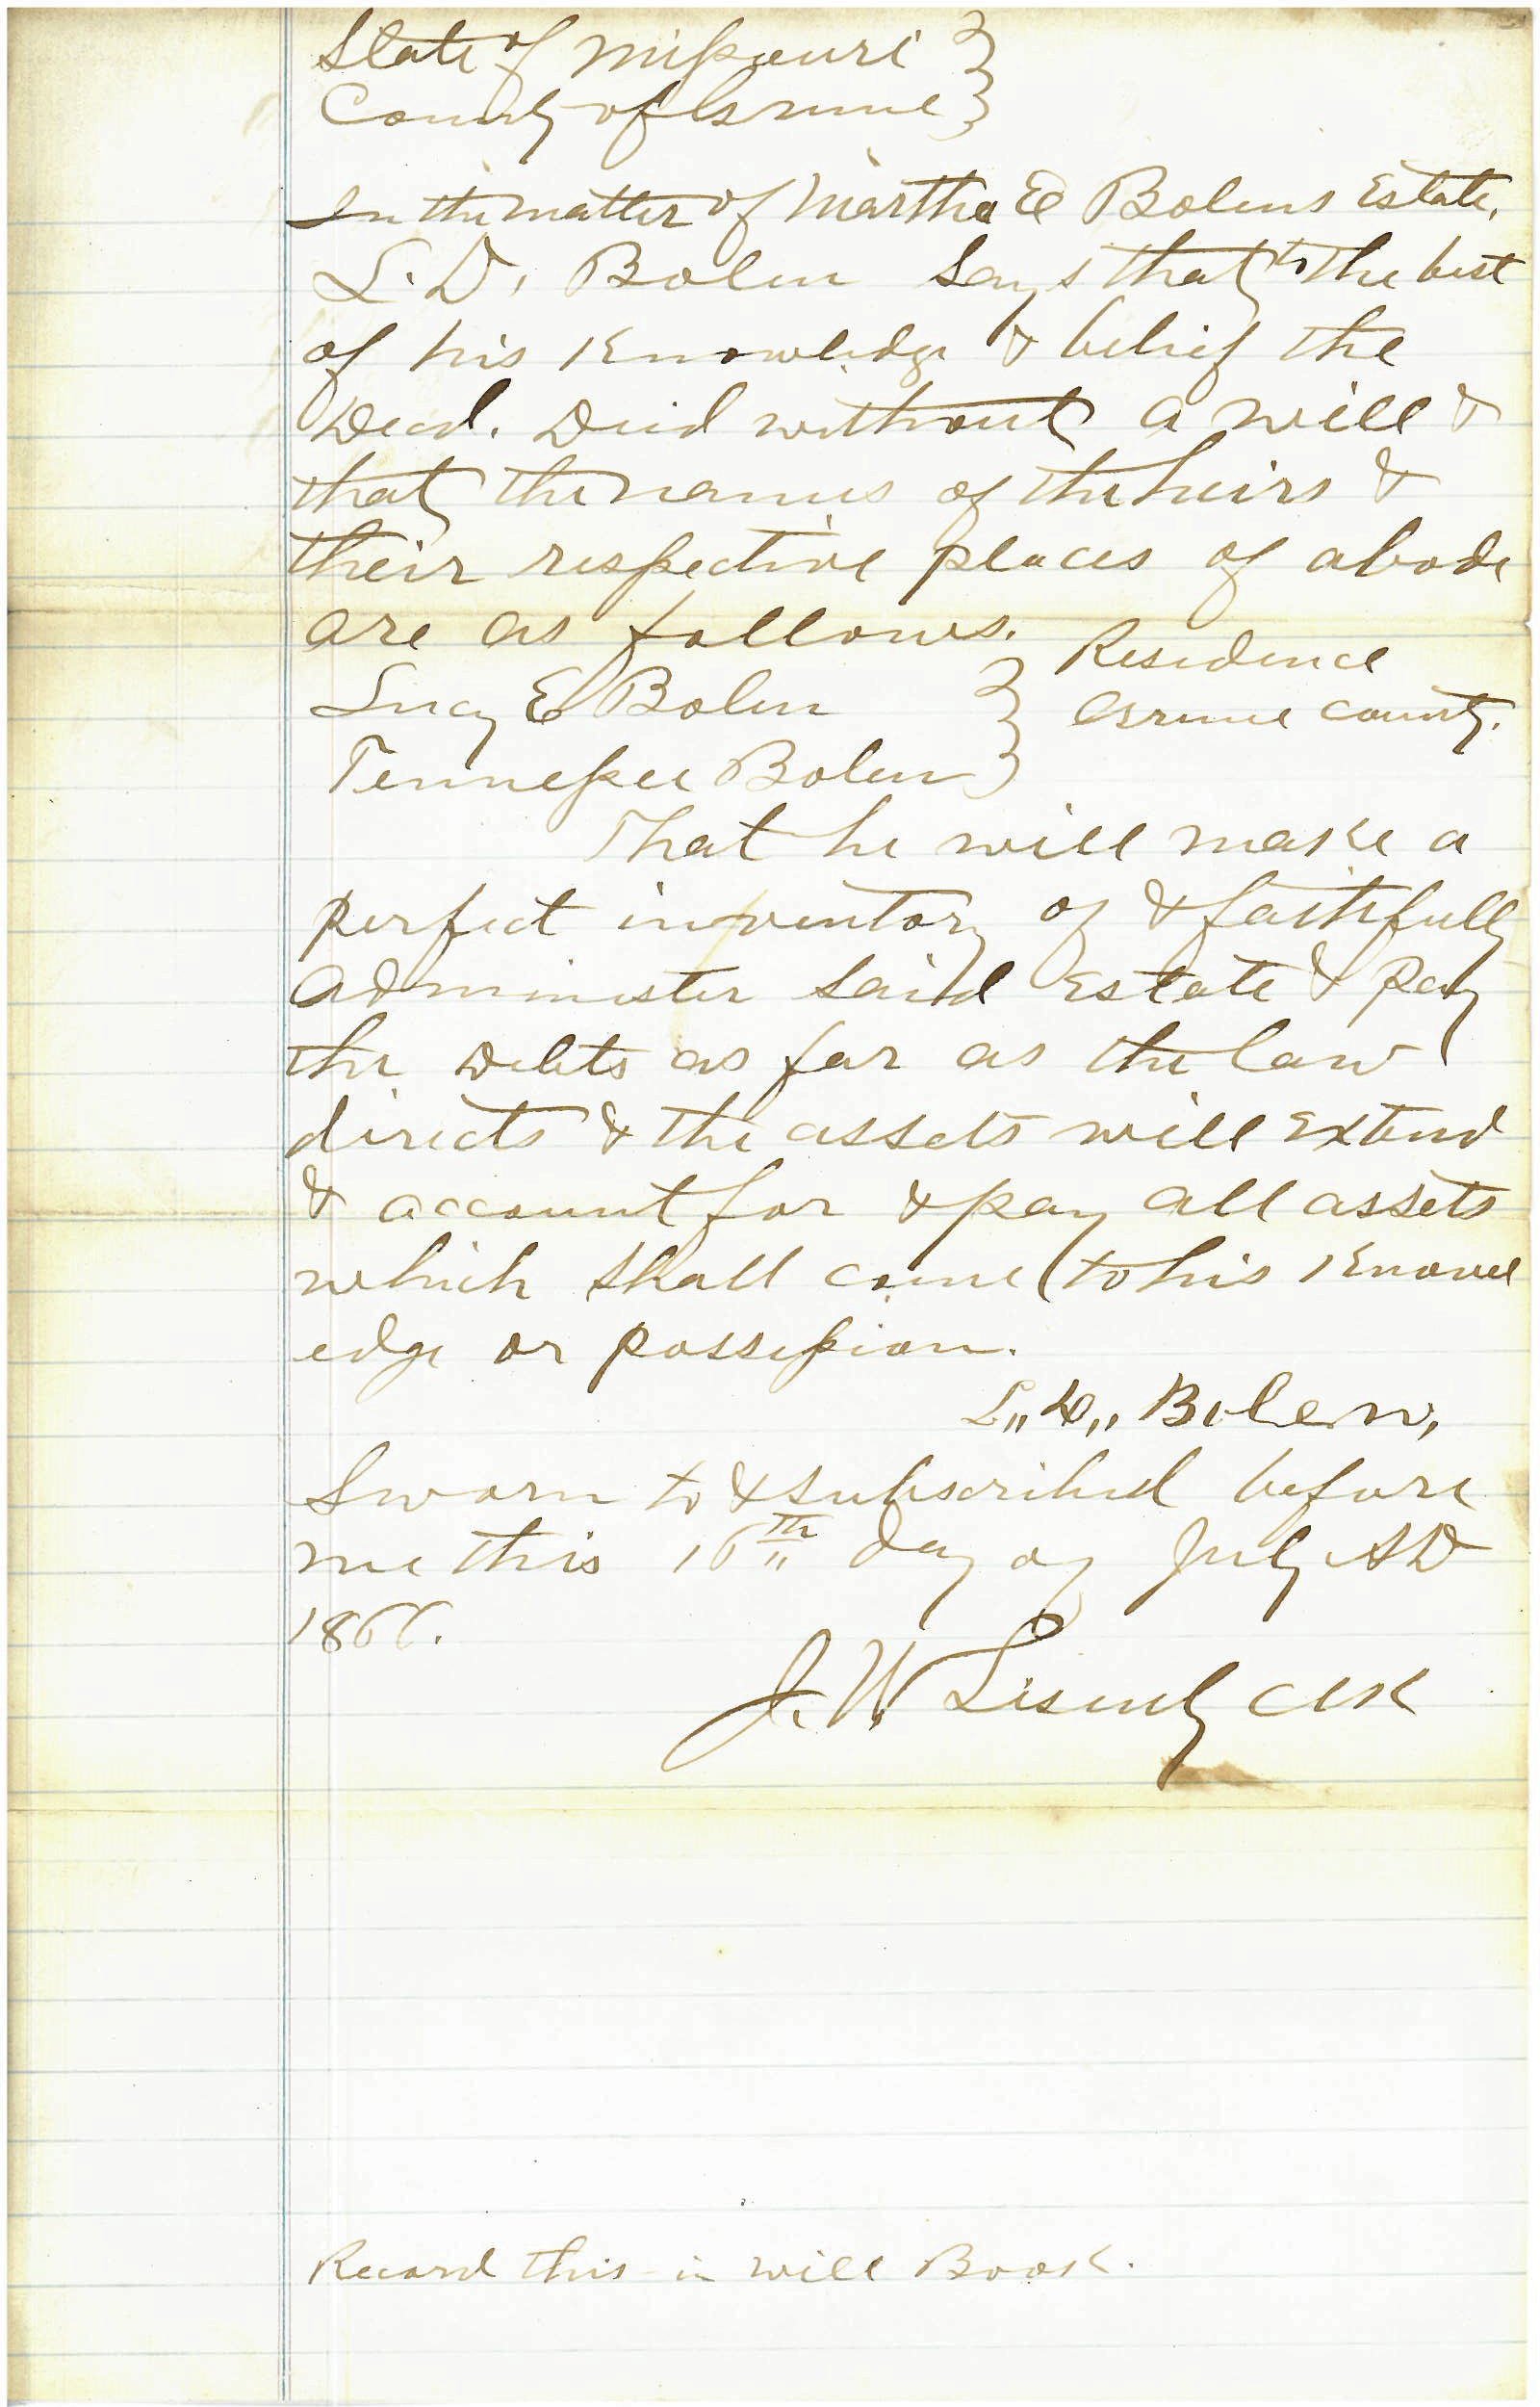 State of Missouri }
County of Greene }
In the matter of Martha E Bolens Estate.
L. D. Bolen Says that to the best
of his Knowledge & belief the
Decd. Died without a will &
that the names of the heirs &
their respective places of abode
are as follows.
Lucy E Bolen } Residence
Tennessee Bolen } Greene county.
That he will make a
perfect inventory of & faithfully
Administer said Estate & pay
the Debts as far as the law
directs & the assets will Extend
& account for & pay all assets
which shall come to his Knowl
edge or possession.
L,, D,, Bolen,
Sworn to & subscribed before
me this 16th day of July AD
1866.
J. W. Lisenby Clk
Record this in will Book.